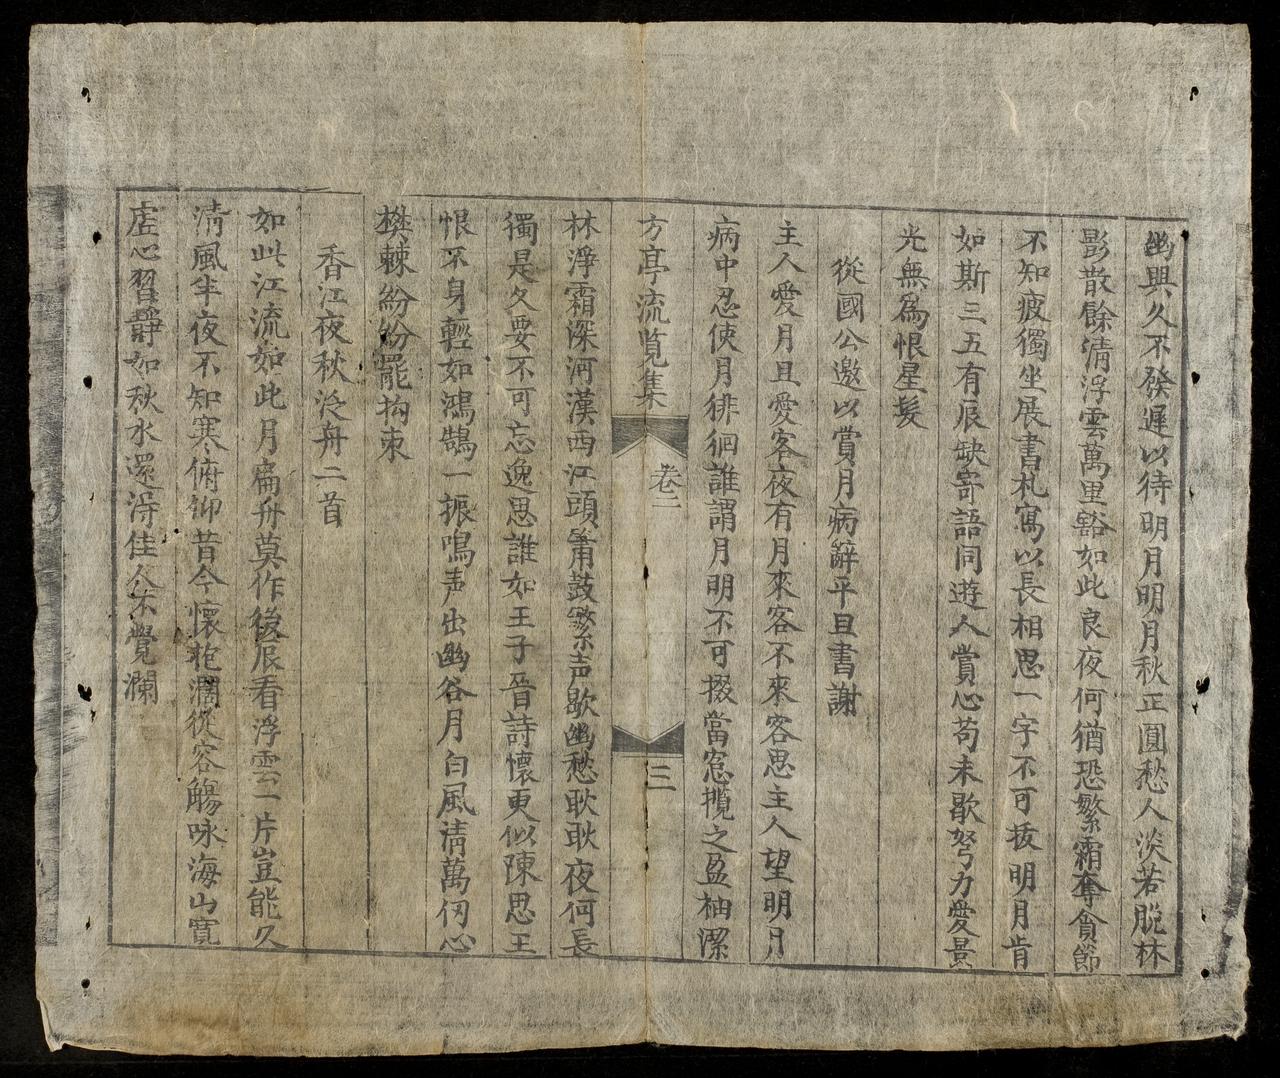 幽興久不發遲以待明月明月秋正圓愁人淡若脫林
影散餘清浮雲萬里豁如此良夜何猶恐繁霜奪貪節
不知疲獨坐展書札寓以長相思一字不可拔明月肯
如斯三五有辰缺寄語同遊人賞心苟未歇努力愛景
光無爲恨星髮
從國公邀以賞月病辭平旦書謝
主人愛月且愛客夜有月來客不來客思主人望明月
病中忍使月徘徊誰謂月明不可掇當窓攬之盈柚潔
方亭流覧集
卷二
三
林淨霜深河漢西江頭簫鼓繁声歇幽愁耿耿夜何長
獨是久要不可忘逸思誰如王子晉詩懷更似陳思王
恨不身輕如鴻鵠一振鳴声出幽谷月白風淸萬仞心
樊棘紛紛罷拘束
香江夜秋泛舟二首
如此江流如此月扁舟莫作後辰看浮雲一片豈能久
淸風半夜不知寒俯仰昔今懷抱濶從容觴咏海山寬
虚心習靜如秋水還淂佳人不覺瀾